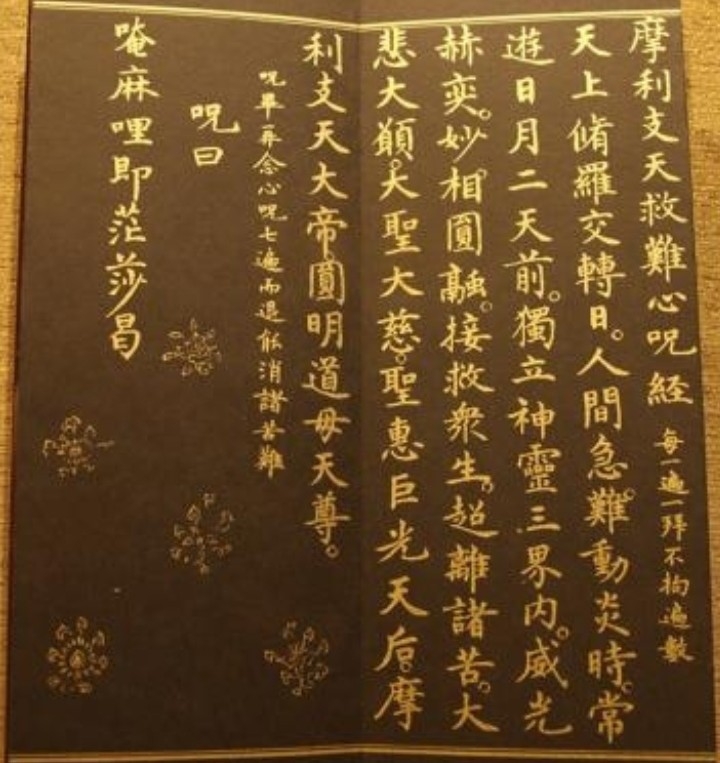 摩利支天救難心呪經 每一遍一拜不拘遍數
天上脩羅交轉日。人間急難動炎時。常
遊日月二天前。獨立神靈三界内。威光
赫奕。妙相圓融。接救衆生。超離諸苦。大
悲大願。大聖大慈。聖惠巨光天后。摩
利支天大帝。圓明道母天尊。
呪畢再念心呪七遍而退能消諸苦難
呪曰
唵麻哩即茫莎曷